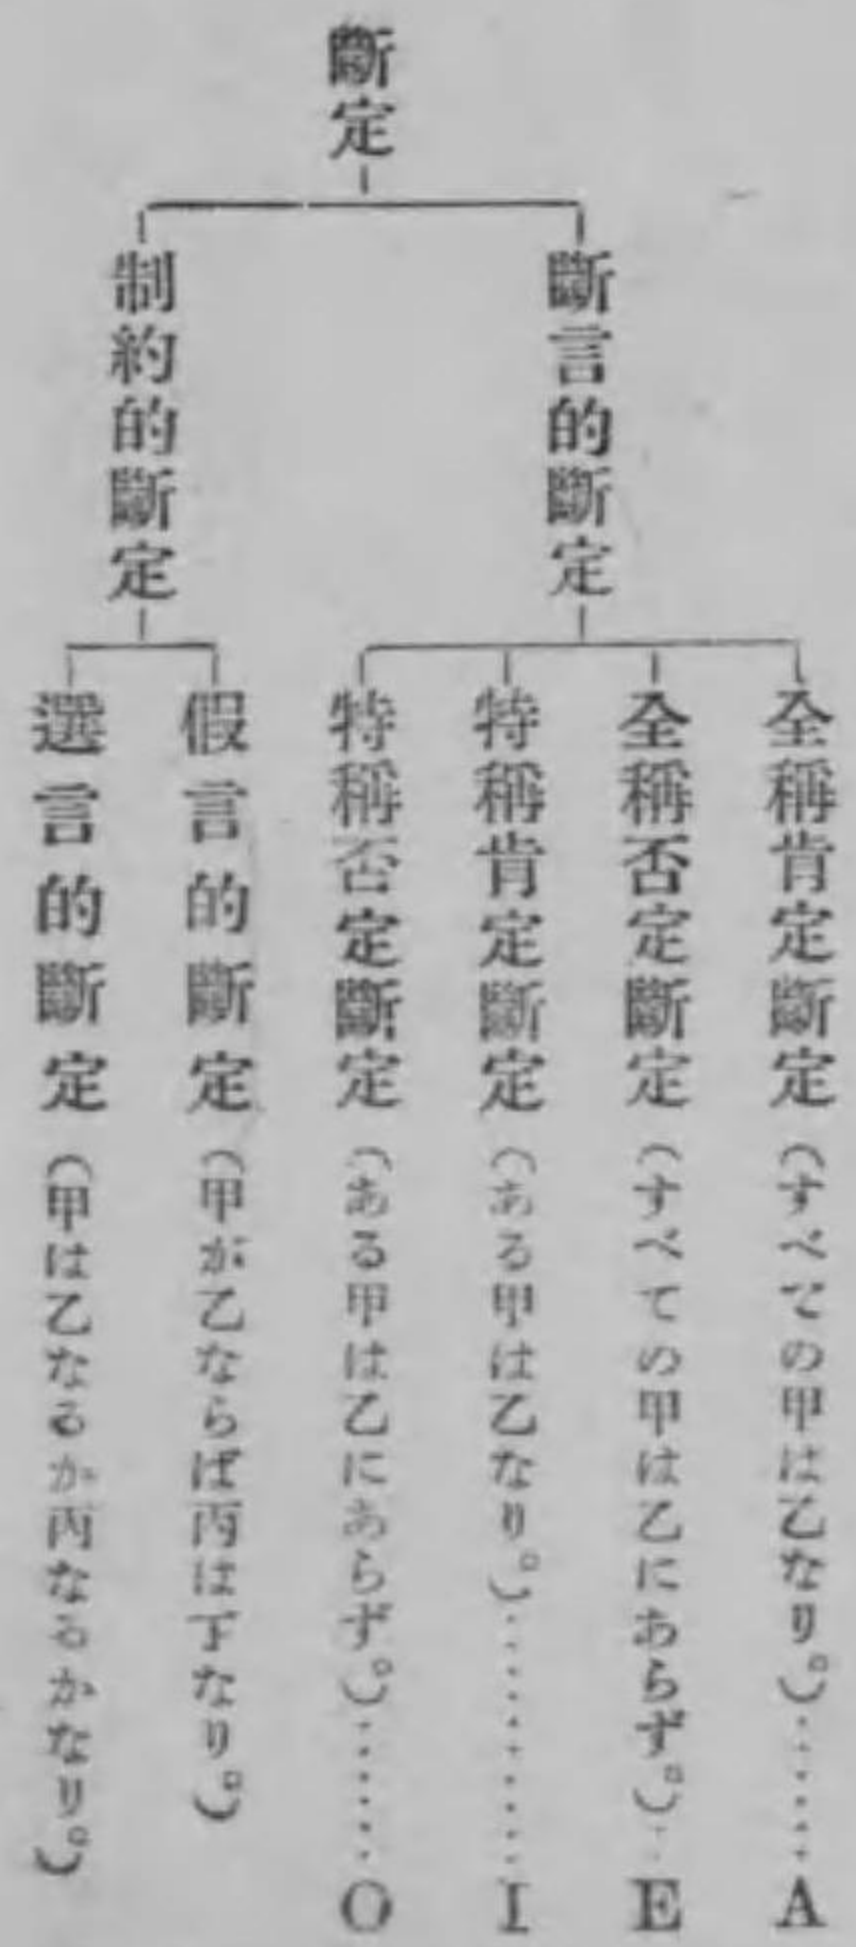 斷定
斷言的斷定
全稱肯定斷定（すべての甲は乙なり。）……A
全稱否定斷定（すべての甲は乙にあらず。）…E
特稱肯定斷定（ある甲は乙なり。）………I
特稱否定斷定（ある甲は乙にあらず。）……O
制約的斷定
假言的斷定（甲が乙ならば丙は丁なり。）
選言的斷定（甲は乙なるか丙なるかなり。）